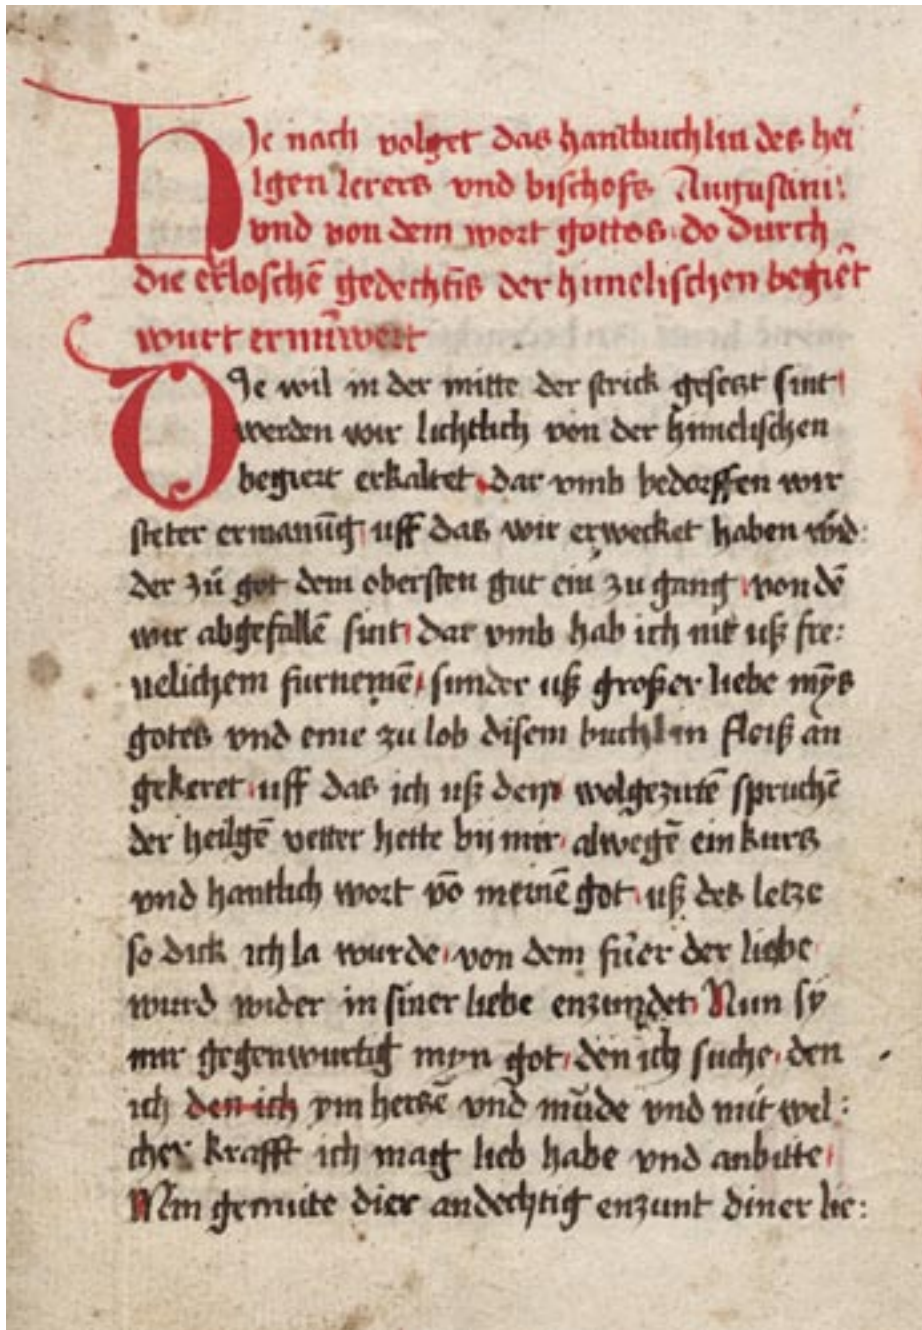 Hie nach volget das hantbuchlin des hei
ligen lerers vnd bischofs Augustini:
vnd von dem wort gottes do durch
die erloschē gedechtīs der himelischen begiert
wurt ernūwert
Die wil in der mitte der strick gesetzt sint
werden wir lichtlich von der himelischen
begiert erkaltet dar vmb bedorffen wir
steter ermanūg uff das wir erwecket haben wid:
der zů got dem obersten gut ein zu gang von dē
wir abgefallē sint dar vmb hab ich nit uß fre:
uelichem furnemē sunder uß großer liebe mȳs
gotes vnd eme zu lob disem buchlin fleiß an
gekeret uff das ich uß dem spruchē
der heilgē vetter hette bij mir alwegē ein kurs
vnd hantlich wort vō meinē got uß des letze
so dick ich la wurde von dem fuer der liebe
wurd wider in siner liebe enzundet Nun sy
mir gegenwurtig myn got den ich suche den
ich den ich ym herzē vnd mūde vnd mit wel:
cher krafft ich mag lieb habe vnd anbitte
Min gemute dier andechtig enzunt diner lie: